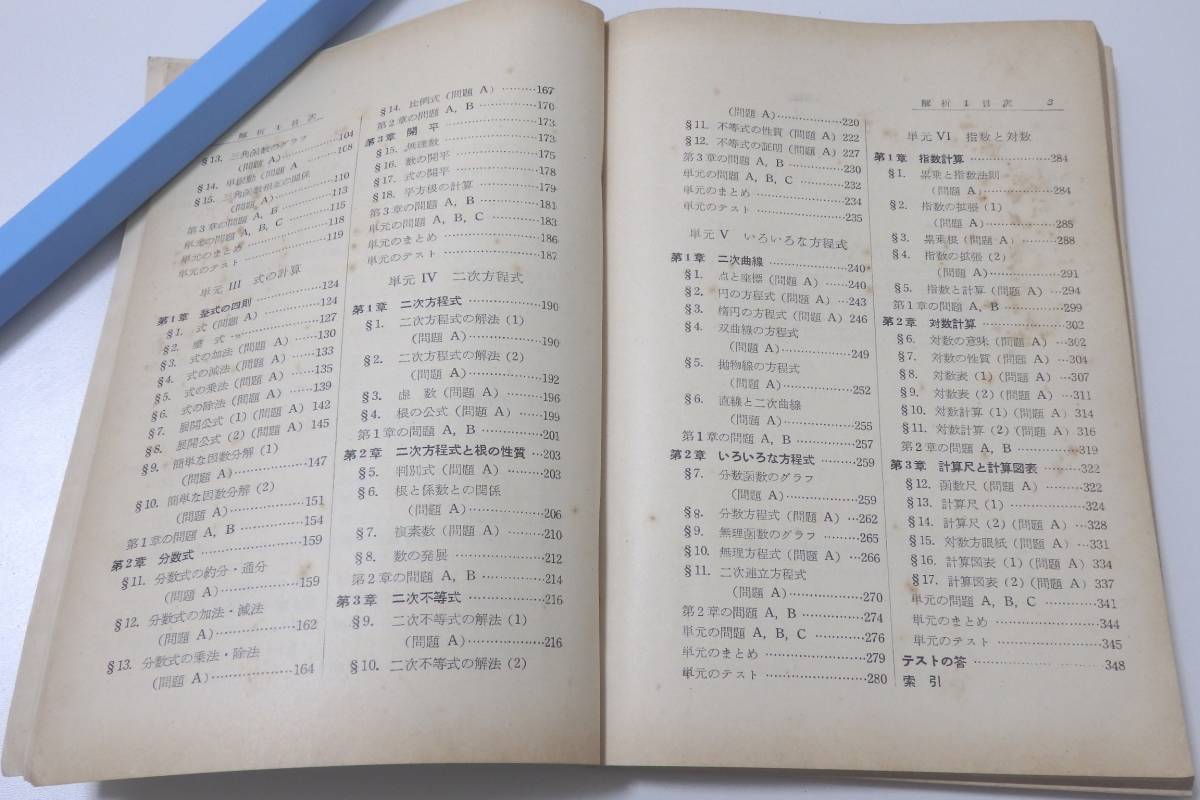 解析 1 目次
§13. 三角函数のグラフ
(問題 A)……104
§14. 単振動 (問題 A……108
§15. 三角函数相互の関係
(問題 A)……110
第3章の問題 A, B……113
単元の問題 A, B, C……115
単元のまとめ……118
単元のテスト……119
単元 III 式の計算
第1章 整式の四則……124
§1. 式 (問題 A)……124
§2. 整式……127
§3. 式の加法 (問題 A)……130
§4. 式の減法 (問題 A)……133
§5. 式の乗法 (問題 A)……135
§6. 式の除法 (問題 A)……139
§7. 展開公式 (1) (問題 A) 142
§8. 展開公式 (2) (問題 A) 145
§9. 簡単な因数分解 (1)
(問題 A)……147
§10. 簡単な因数分解 (2)
(問題 A)……151
第1章の問題 A, B……154
第2章 分数式……159
§11. 分数式の約分・通分
(問題 A)……159
§12. 分数式の加法・減法
(問題 A)……162
§13. 分数式の乗法・除法
(問題 A)……164
§14. 比例式 (問題 A)……167
第2章の問題 A, B……170
第3章 開平……173
§15. 無理数……173
§16. 数の開平……175
§17. 式の開平……178
§18. 平方根の計算……179
第3章の問題 A, B……181
単元の問題 A, B, C……183
単元のまとめ……186
単元のテスト……187
単元 IV 二次方程式
第1章 二次方程式……190
§1. 二次方程式の解法 (1)
(問題 A)……190
§2. 二次方程式の解法 (2)
(問題 A)……192
§3. 虚数 (問題 A)……196
§4. 根の公式 (問題 A)……199
第1章の問題 A, B……201
第2章 二次方程式と根の性質…203
§5. 判別式 (問題 A)……203
§6. 根と係数との関係
(問題 A)……206
§7. 複素数 (問題 A)……210
§8. 数の発展……212
第2章の問題 A, B……214
第3章 二次不等式……216
§9. 二次不等式の解法 (1)
(問題 A)……216
§10. 二次不等式の解法 (2)
解析 1 目次 3
(問題 A)……220
§11. 不等式の性質 (問題 A) 222
§12. 不等式の証明 (問題 A) 227
第3章の問題 A, B……230
単元の問題 A, B, C……232
単元のまとめ……234
単元のテスト……235
単元 V いろいろな方程式
第1章 二次曲線……240
§1. 点と座標 (問題 A)……240
§2. 円の方程式 (問題 A)…243
§3. 楕円の方程式 (問題 A) 246
§4. 双曲線の方程式
(問題 A)……249
§5. 抛物線の方程式
(問題 A)……252
§6. 直線と二次曲線
(問題 A)……255
第1章の問題 A, B……257
第2章 いろいろな方程式……259
§7. 分数函数のグラフ
(問題 A)……259
§8. 分数方程式 (問題 A)…262
§9. 無理函数のグラフ……265
§10. 無理方程式 (問題 A)…266
§11. 二次連立方程式
(問題 A)……270
第2章の問題 A, B……274
単元の問題 A, B, C……276
単元のまとめ……279
単元のテスト……280
単元 VI 指数と対数
第1章 指数計算……284
§1. 累乗と指数法則
(問題 A)……284
§2. 指数の拡張 (1)
(問題 A)……285
§3. 累乗根 (問題 A)……288
§4. 指数の拡張 (2)
(問題 A)……291
§5. 指数と計算 (問題 A)…294
第1章の問題 A, B……299
第2章 対数計算……302
§6. 対数の意味 (問題 A)…302
§7. 対数の性質 (問題 A)…304
§8. 対数表 (1) (問題 A)…307
§9. 対数表 (2) (問題 A)…311
§10. 対数計算 (1) (問題 A) 314
§11. 対数計算 (2) (問題 A) 316
第2章の問題 A, B……319
第3章 計算尺と計算図表……322
§12. 函数尺 (問題 A)……322
§13. 計算尺 (1)……324
§14. 計算尺 (2) (問題 A)…328
§15. 対数方眼紙 (問題 A)…331
§16. 計算図表 (1) (問題 A) 334
§17. 計算図表 (2) (問題 A) 337
単元の問題 A, B, C……341
単元のまとめ……344
単元のテスト……345
テストの答……348
索引